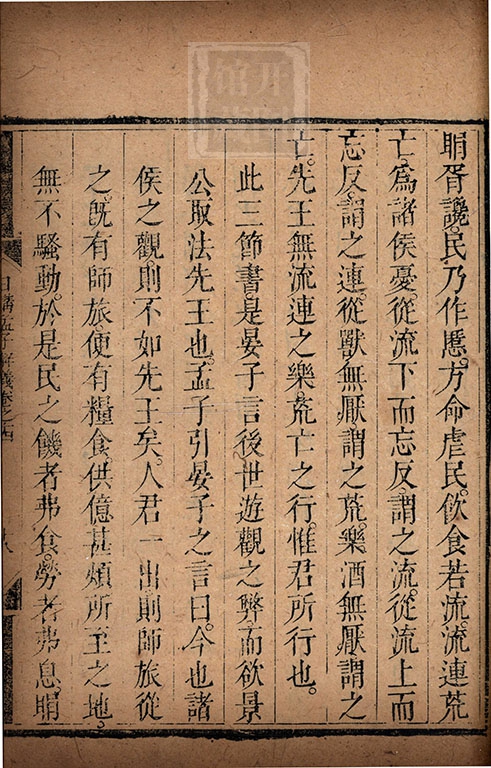 睊胥讒。民乃作慝。方命虐民。飲食若流。流連荒
亡。爲諸侯憂。從流下而忘反謂之流。從流上而
忘反。謂之連。從獸無厭謂之荒。樂酒無厭謂之
亡。先王無流連之樂。荒亡之行。惟君所行也。
此三節書。是晏子言後世遊觀之弊而欲景
公取法先王也。孟子引晏子之言曰。今也諸
侯之觀。則不如先王矣。人君一出則師旅從
之。旣有師旅。便有糧食。供億甚煩。所至之地。
無不騷動。於是民之饑者弗食。勞者弗息。睊
日講孟子解義卷之十四